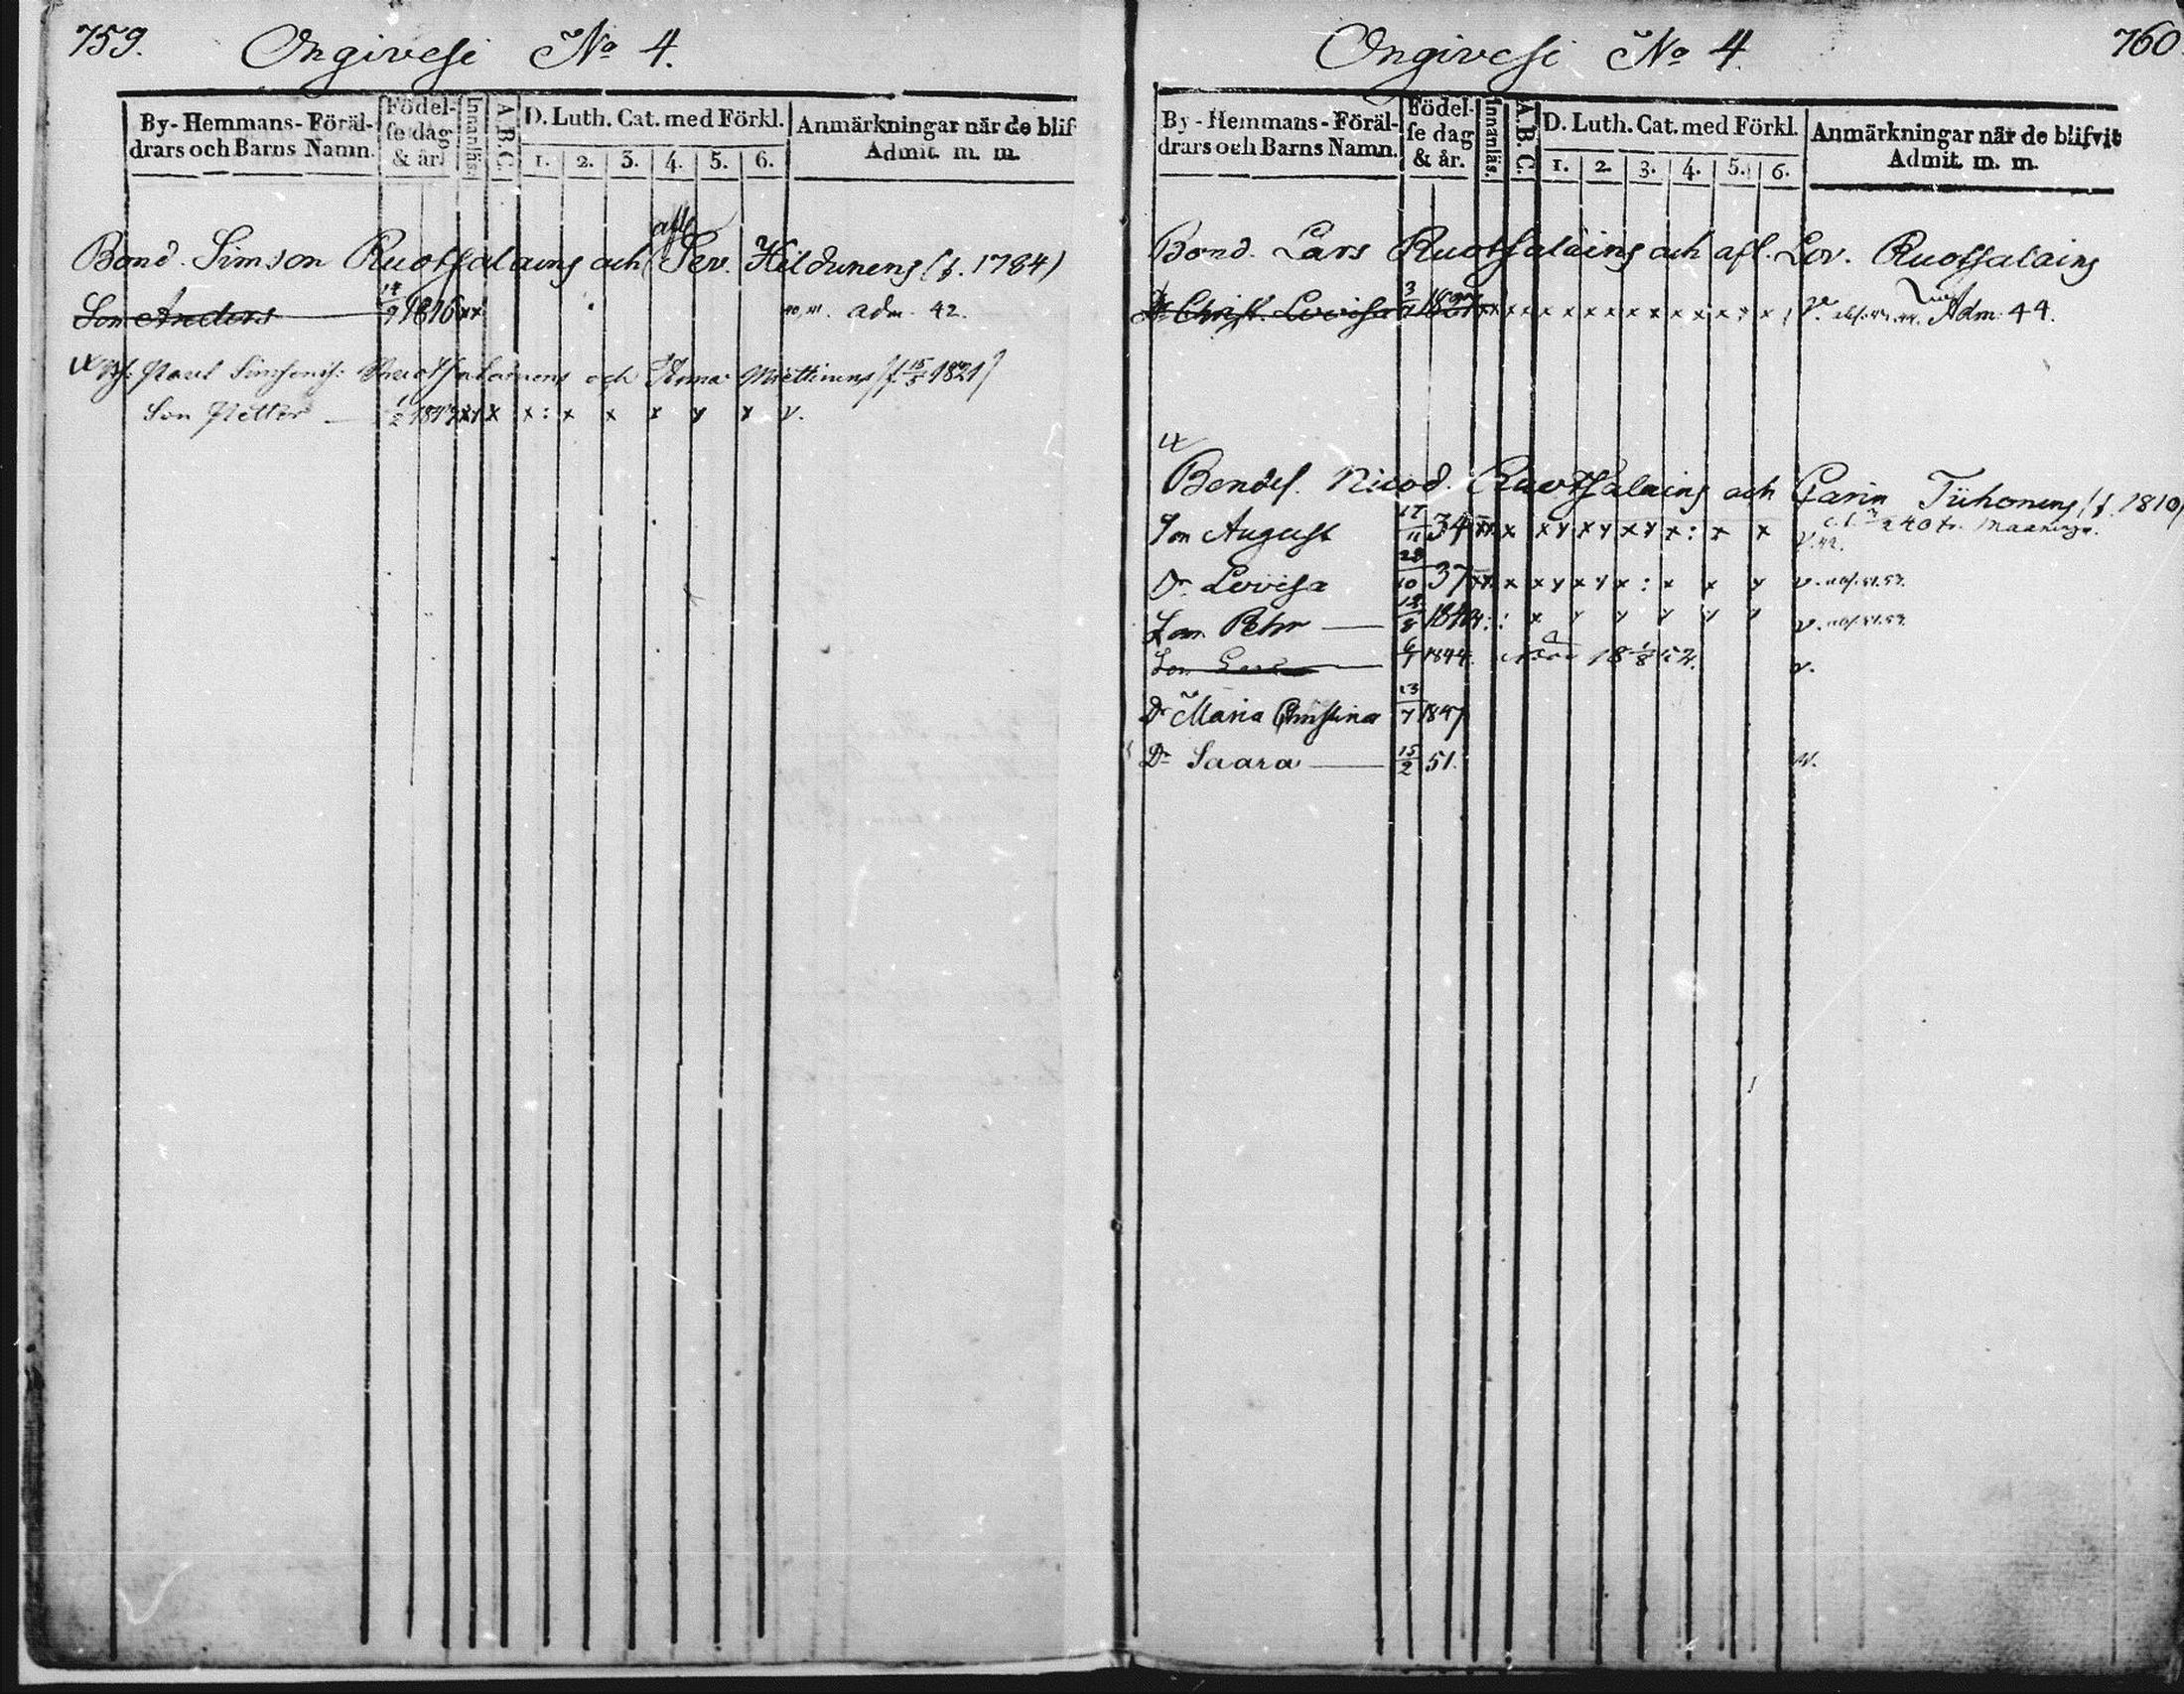 759.
Ongivesi No 4.
By-Hemmans-Föräl-
drars och Barns Namn.
Födel-
se dag
& år.
Innanläs.
A. B. C.
D. Luth. Cat. med Förkl.
1. 2. 3. 4. 5. 6.
Anmärkningar när de blif
Admit. m. m.
afl.
Bond. Simson Ruotsalains och Sev. Hildunens (f. 1784)
Son Anders 14/9 1816 xx adm. 42.
Paul Ruotsalainens och Anna Miettinens (f. 15/5 1821)
Son Petter 1/2 x x : x x x y x v.
760
Ongivesi No 4
By-Hemmans-Föräl-
drars och Barns Namn.
Födel-
se dag
& år.
Innanläs.
A. B. C.
D. Luth. Cat. med Förkl.
1. 2. 3. 4. 5. 6.
Anmärkningar när de blifvit
Admit. m. m.
Bond. Lars Ruotsalains och afl. Lov. Ruotsalains
Christ. Lovisa x x x x x x x x x x x x Adm 44.
Bondes. Nicod. Ruotsalains och Carin Tiihonens (f. 1810)
40 fr. Maaninga.
Son August 17/11 34 xx x x y x y x y x : x x v. 42.
Dr Lovisa 28/10 37 xx x x y x y x : x x y v.
Son Pehr 18/8 : x y y y y y v.
Son 6/7 1844. v.
Dr Maria Christina 13/7 1847
Dr Saara 15/2 51.